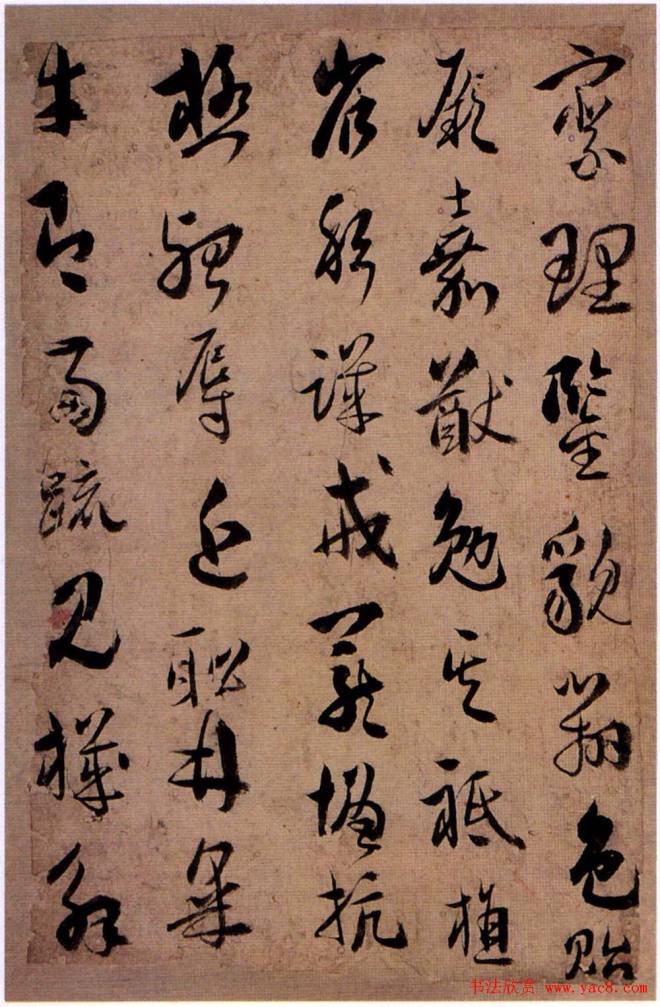 察理鑒貌辯色貽
厥嘉猷勉其祗植
省躬譏戒寵增抗
極殆辱近恥林皋
幸即兩疏見機解
书法欣赏 www.yac8.com